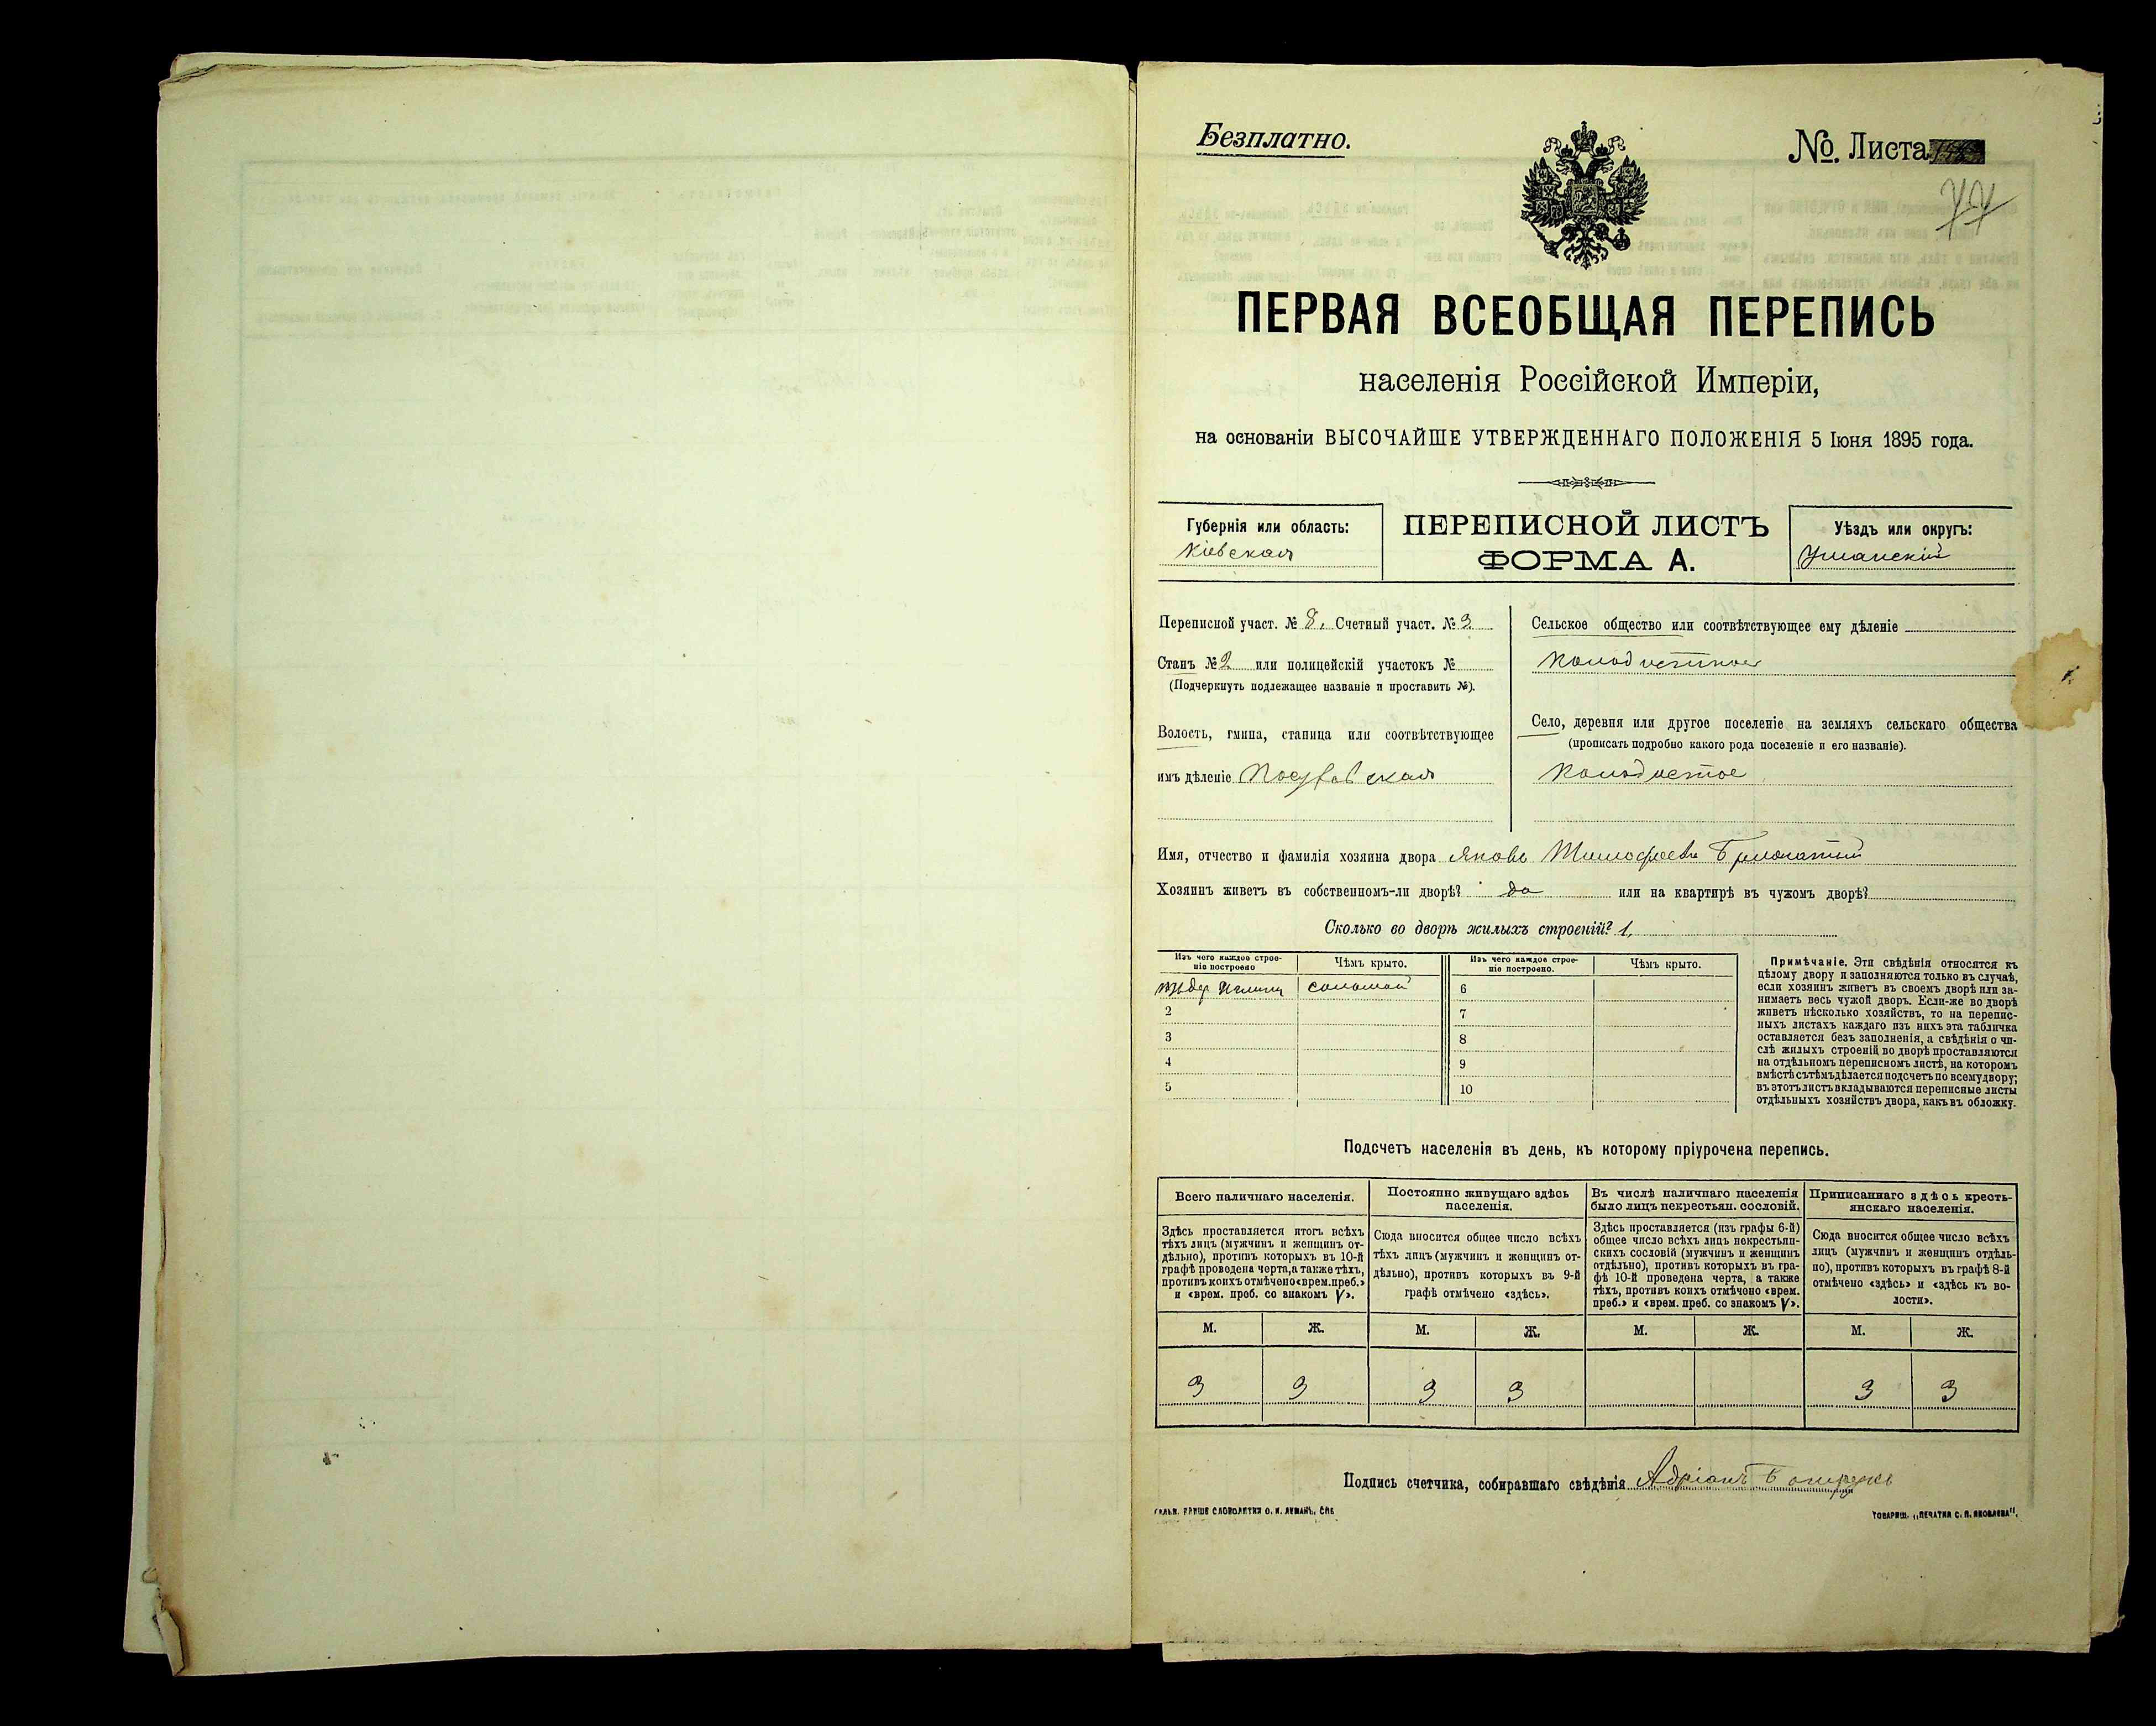 Безплатно.
№. Листа
ПЕРВАЯ ВСЕОБЩАЯ ПЕРЕПИСЬ
населенія Россійской Имперіи,
на основаніи ВЫСОЧАЙШЕ УТВЕРЖДЕННАГО ПОЛОЖЕНІЯ 5 Іюня 1895 года.
Губернія или область:
Кіевская
ПЕРЕПИСНОЙ ЛИСТЪ
ФОРМА А.
Уѣздъ или округъ:
Уманскій
Переписной участ. № 8. Счетный участ. № 3
Станъ № 2 или полицейскій участокъ №
(Подчеркнуть подлежащее названіе и проставить №).
Волость, гмина, станица или соотвѣтствующее
имъ дѣленіе
Сельское общество или соотвѣтствующее ему дѣленіе
Село, деревня или другое поселеніе на земляхъ сельскаго общества
(прописать подробно какого рода поселеніе и его названіе).
Колодистое
Имя, отчество и фамилія хозяина двора Яковъ Тимофеевъ
Хозяинъ живетъ въ собственномъ-ли дворѣ? да или на квартирѣ въ чужомъ дворѣ?
Сколько во дворѣ жилыхъ строеній? 1.
Изъ чего каждое строе-
ніе построено
Чѣмъ крыто.
Изъ чего каждое строе-
ніе построено.
Чѣмъ крыто.
соломой
6
2
7
3
8
4
9
5
10
Примѣчаніе. Эти свѣдѣнія относятся къ
цѣлому двору и заполняются только въ случаѣ,
если хозяинъ живетъ въ своемъ дворѣ или за-
нимаетъ весь чужой дворъ. Если-же во дворѣ
живетъ нѣсколько хозяйствъ, то на перепис-
ныхъ листахъ каждаго изъ нихъ эта табличка
оставляется безъ заполненія, а свѣдѣнія о чи-
слѣ жилыхъ строеній во дворѣ проставляются
на отдѣльномъ переписномъ листѣ, на которомъ
вмѣстѣ съ тѣмъ дѣлается подсчетъ по всему двору;
въ этотъ листъ вкладываются переписные листы
отдѣльныхъ хозяйствъ двора, какъ въ обложку.
Подсчетъ населенія въ день, къ которому пріурочена перепись.
Всего наличнаго населенія.
Здѣсь проставляется итогъ всѣхъ
тѣхъ лицъ (мужчинъ и женщинъ от-
дѣльно), противъ которыхъ въ 10-й
графѣ проведена черта, а также тѣхъ,
противъ коихъ отмѣчено «врем. преб.»
и «врем. преб. со знакомъ V».
Постоянно живущаго здѣсь
населенія.
Сюда вносится общее число всѣхъ
тѣхъ лицъ (мужчинъ и женщинъ от-
дѣльно), противъ которыхъ въ 9-й
графѣ отмѣчено «здѣсь».
Въ числѣ наличнаго населенія
было лицъ некрестьян. сословій.
Здѣсь проставляется (изъ графы 6-й)
общее число всѣхъ лицъ некрестьян-
скихъ сословій (мужчинъ и женщинъ
отдѣльно), противъ которыхъ въ гра-
фѣ 10-й проведена черта, а также
тѣхъ, противъ коихъ отмѣчено «врем.
преб.» и «врем. преб. со знакомъ V».
Приписаннаго здѣсь кресть-
янскаго населенія.
Сюда вносится общее число всѣхъ
лицъ (мужчинъ и женщинъ отдѣль-
но), противъ которыхъ въ графѣ 8-й
отмѣчено «здѣсь» и «здѣсь къ во-
лости».
М. Ж. М. Ж. М. Ж. М. Ж.
3 3 3 3 3 3
Подпись счетчика, собиравшаго свѣдѣнія Адріанъ
ГАЛЬВ. КЛИШЕ СЛОВОЛИТНИ О. И. ЛЕМАНЪ, СПБ
ТОВАРИЩ. „ПЕЧАТНЯ С. П. ЯКОВЛЕВА".